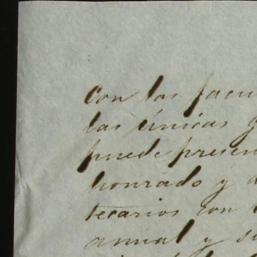 Con los facu
las únicas q
puede presen
honrado y a
tecarios con
anual y su